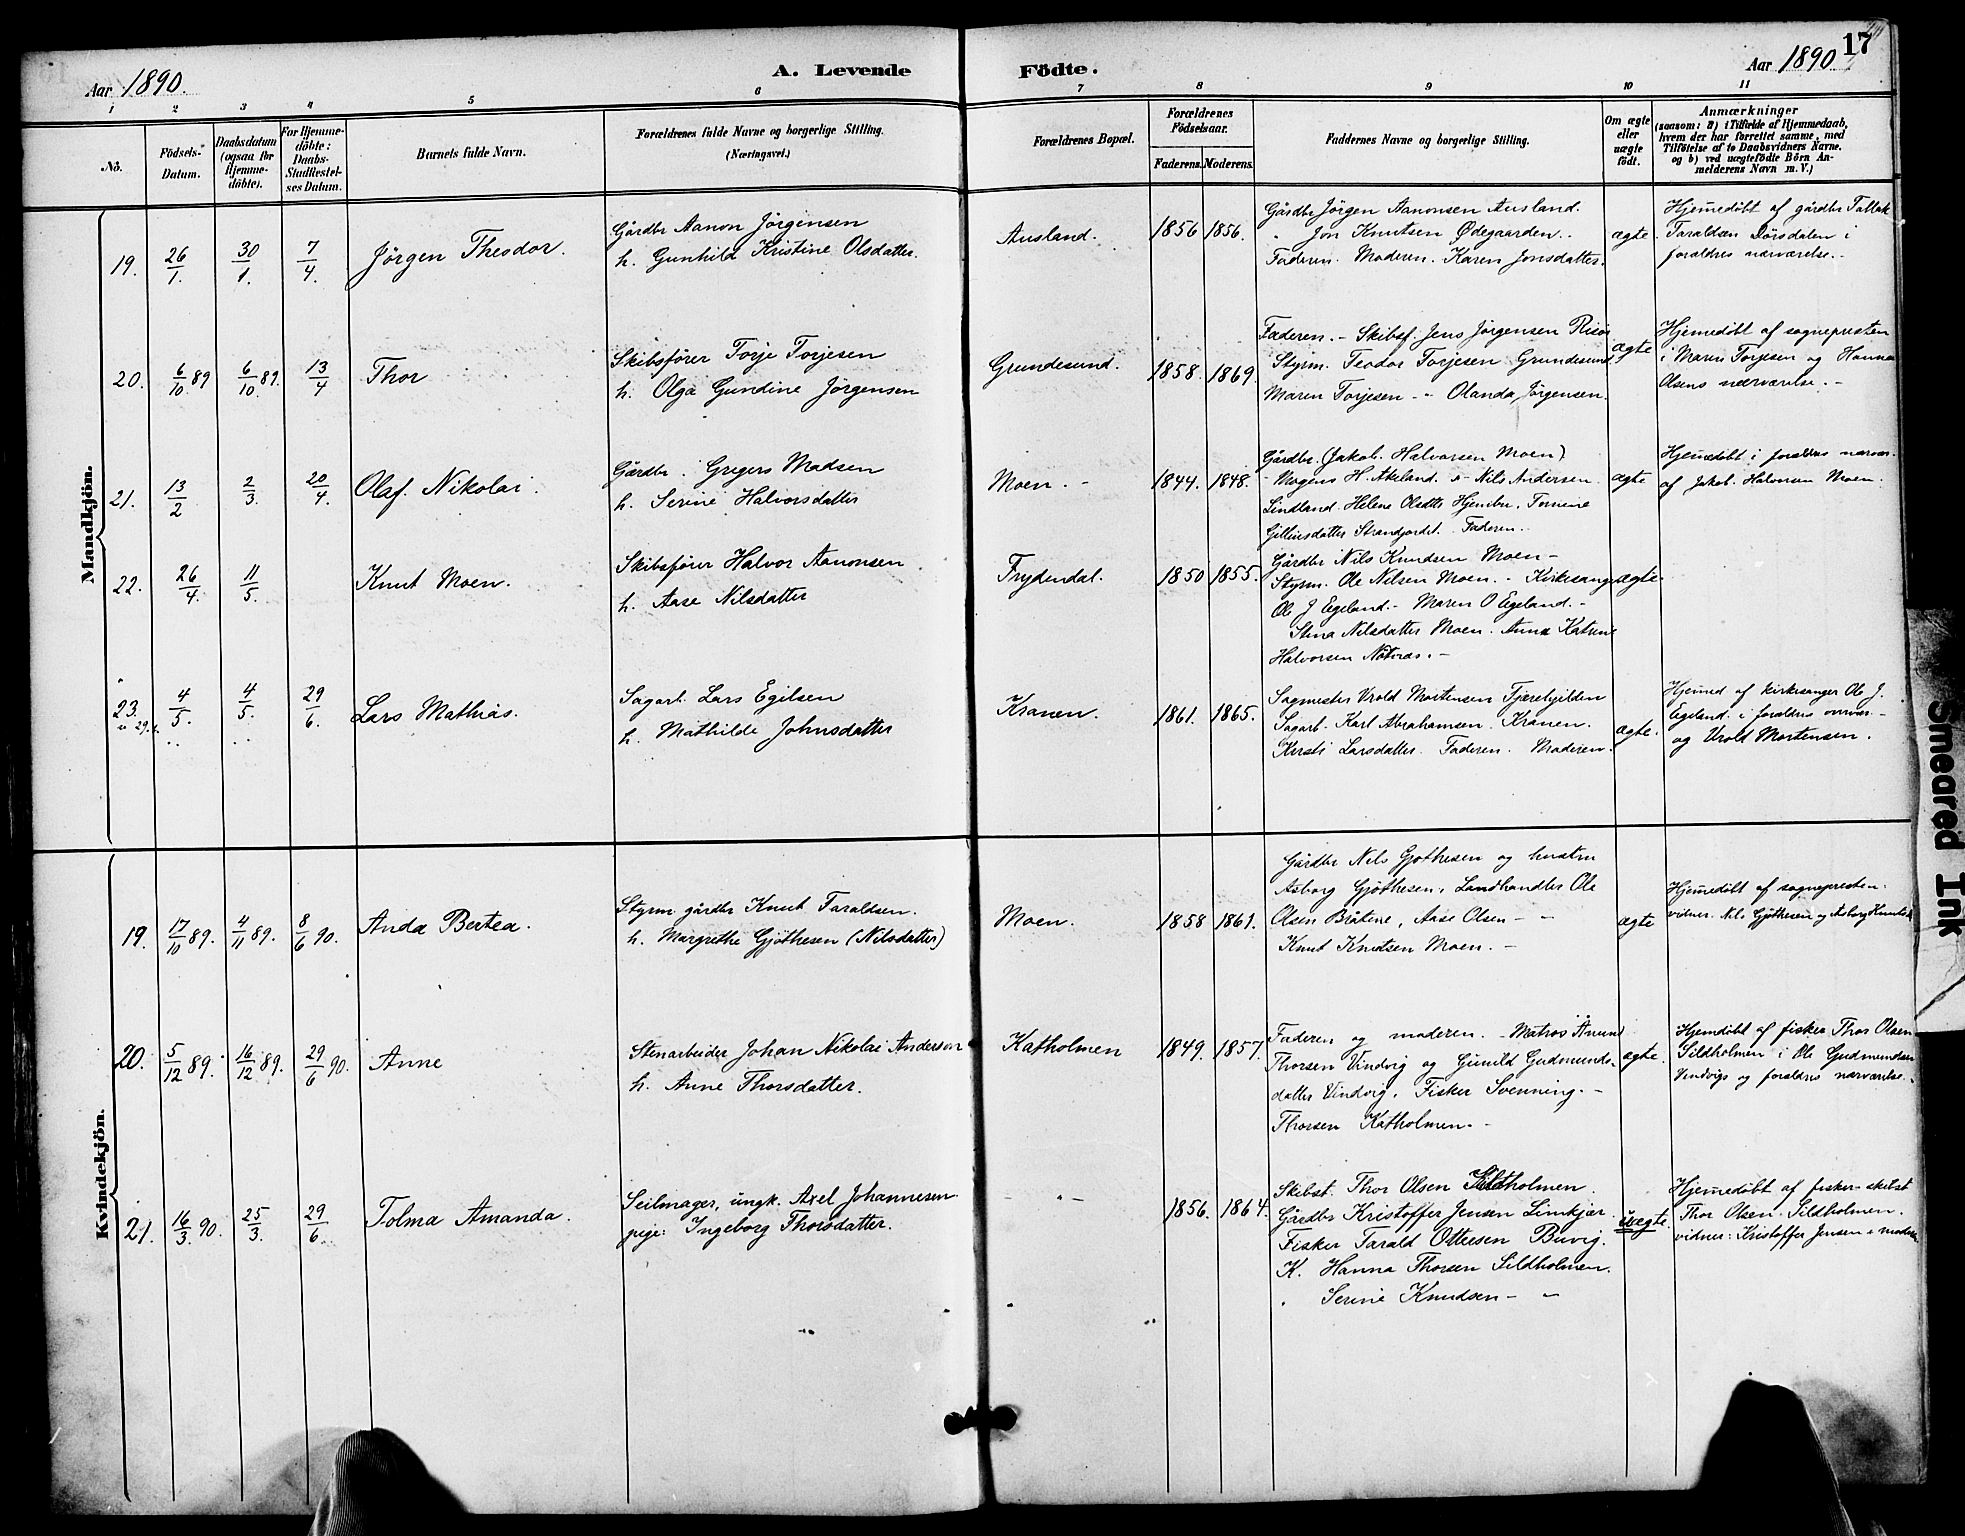 17
Aar 1890.
A. Levende Födte.
Aar 1890
1 2 3 4 5 6 7 8 9 10 11
No.
Födsels-Datum.
Daabsdatum (ogsaa for Hjemme-döbte).
For Hjemme-döbte: Daabs-Stadfæstel-ses Datum.
Barnets fulde Navn.
Forældrenes fulde Navne og borgerlige Stilling.
(Næringsvei.)
Forældrenes Bopæl.
Forældrenes Födselsaar.
Faderens. Moderens.
Faddernes Navne og borgerlige Stilling.
Om ægte eller uægte födt.
Anmærkninger
(saasom: a) i Tilfælde af Hjemmedaab,
hvem der har forrettet samme, med
Tilföielse af to Daabsvidners Navne.
og b) ved uægtefödte Börn An-
melderens Navn m. V.)
Mandkjön.
19. 26/1. 30/1. 7/4 Jörgen Theodor.
Gårdbr Aanon Jörgensen
h. Gunhild Kristine Olsdatter.
Ausland. 1856 1856.
Gårdbr Jörgen Aanonsen Ausland.
" Jon Knutsen Ødegaarden.
Faderen. Moderen. Karen Jonsdatter.
ægte.
Hjemedöbt af gårdbr Tallak
Taraldsen Dörsdalen i
foraldres nærværelse.-
20. 6/10 89 6/10 89. 13/4 Thor
Skibsförer Torje Torjesen
h. Olga Gundine Jörgensen
Grundesund. 1858. 1869.
Faderen. - Skibsf. Jens Jörgensen Risör
Styrm. Teodor Torjesen Grundesund
Maren Torjesen - " Olanda Jörgensen.
ægte
Hjemedöbt af sognepresten
i Maren Torjesen og Hanna
Olsens nærværelse. -
21. 13/2 2/3 20/4. Olaf Nikolai.
Gårdbr. Gregers Madsen
h. Serine Halvorsdatter
Moen. - 1844. 1848.
Gårdbr. (Jakob Halvorsen Moen)
- Mogens H. Akeland. - Nils Andersen
Lindland. Helene Olsdtr Hjembu. Tomine
Strandjordet. Faderen.
ægte
Hjemedöbt i foraldres nærvær.
af Jakob Halvorsen Moen.
22. 26/4. 11/5. Knut Moen.
Skibsförer Halvor Aanonsen
h. Aase Nilsdatter
Frydendal. 1850 1855.
Gårdbr Nils Knudsen Moen -
Styrm. Ole Nilsen Moen. - Kirkesanger
Ole J Egeland. - Maren O Egeland. -
Stina Nilsdatter Moen. Anna Katrine
Halvorsen
ægte.
23. 4/5. 4/5. 29/6. Lars Mathias.
Sagarb. Lars Egilsen
h. Mathilde Johnsdatter
Kranen. 1861. 1865.
Sagmester Vrold Mortensen Tjærehjelden
Sagarb. Karl Abrahamsen Kranen.
Kirsti Larsdatter. Faderen. Moderen.
ægte.
Hjemed af kirkesanger Ole J.
Egeland i foraldres overvær -
og Vrold Mortensen.
Kvindekjön.
19. 17/10 89. 4/11 89. 8/6 90. Anda Bertea.
Styrm. gårdbr Knut Taraldsen.
h. Margrethe Gjöthesen (Nilsdatter)
Moen. 1858 1861.
Gårdbr Nils Gjöthesen og hustru
Asborg Gjöthesen, Landhandler Ole
Olsen Bråtene, Aase Olsen - "
Knut Knutsen Moen. -
ægte
Hjemedöbt af sognepresten.
vidner. Nils Gjöthesen og Asborg Knutsd
20. 5/12 89. 16/12 89. 29/6 90. Anne
Stenarbeider Johan Nikolai Anderson
h. Anne Thorsdatter.
Katholmen 1849. 1857.
Faderen og moderen. - Matros Anund
Thorsen Vindvig og Gunild Gudmunds-
datter Vindvig. Fisker Svenning. -
Thorsen Katholmen. -
ægte.
Hjemdöbt af fisker Thor Olsen
Sildholmen i Ole Gudmundsen
Vindvigs og foraldres nærværelse.
21. 16/3. 90. 25/3. 29/6 Tolma Amanda.
Seilmager, ungk. Axel Johannesen.
pige: Ingeborg Thorsdatter.
- " - 1856. 1864.
Skibst. Thor Olsen Sildholmen.
Gårdbr Kristoffer Jensen Limkjær.
Fisker Tarald Ottersen Buvig.
K. Hanna Thorsen Sildholmen.
" Serine Knudsen - "
uægte.
Hjemedöbt af fisker - skibst
Thor Olsen. Sildholmen.
vidner: Kristoffer Jensen & moderen
Smeared Ink